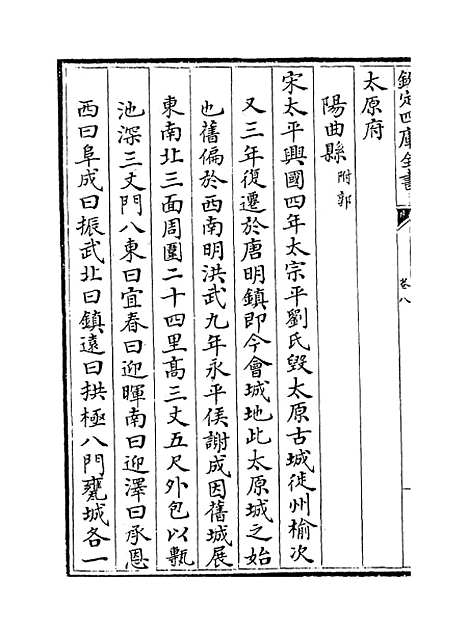 欽定四庫全書
卷八
太原府
陽曲縣附郭
宋太平興國四年太宗平劉氏毀太原古城徙州榆次
又三年復遷於唐明鎮即今會城地此太原城之始
也舊偏於西南明洪武九年永平侯謝成因舊城展
東南北三面周圍二十四里高三丈五尺外包以甎
池深三丈門八東曰宜春曰迎暉南曰迎澤曰承恩
西曰阜成曰振武北曰鎮遠曰拱極八門甕城各一